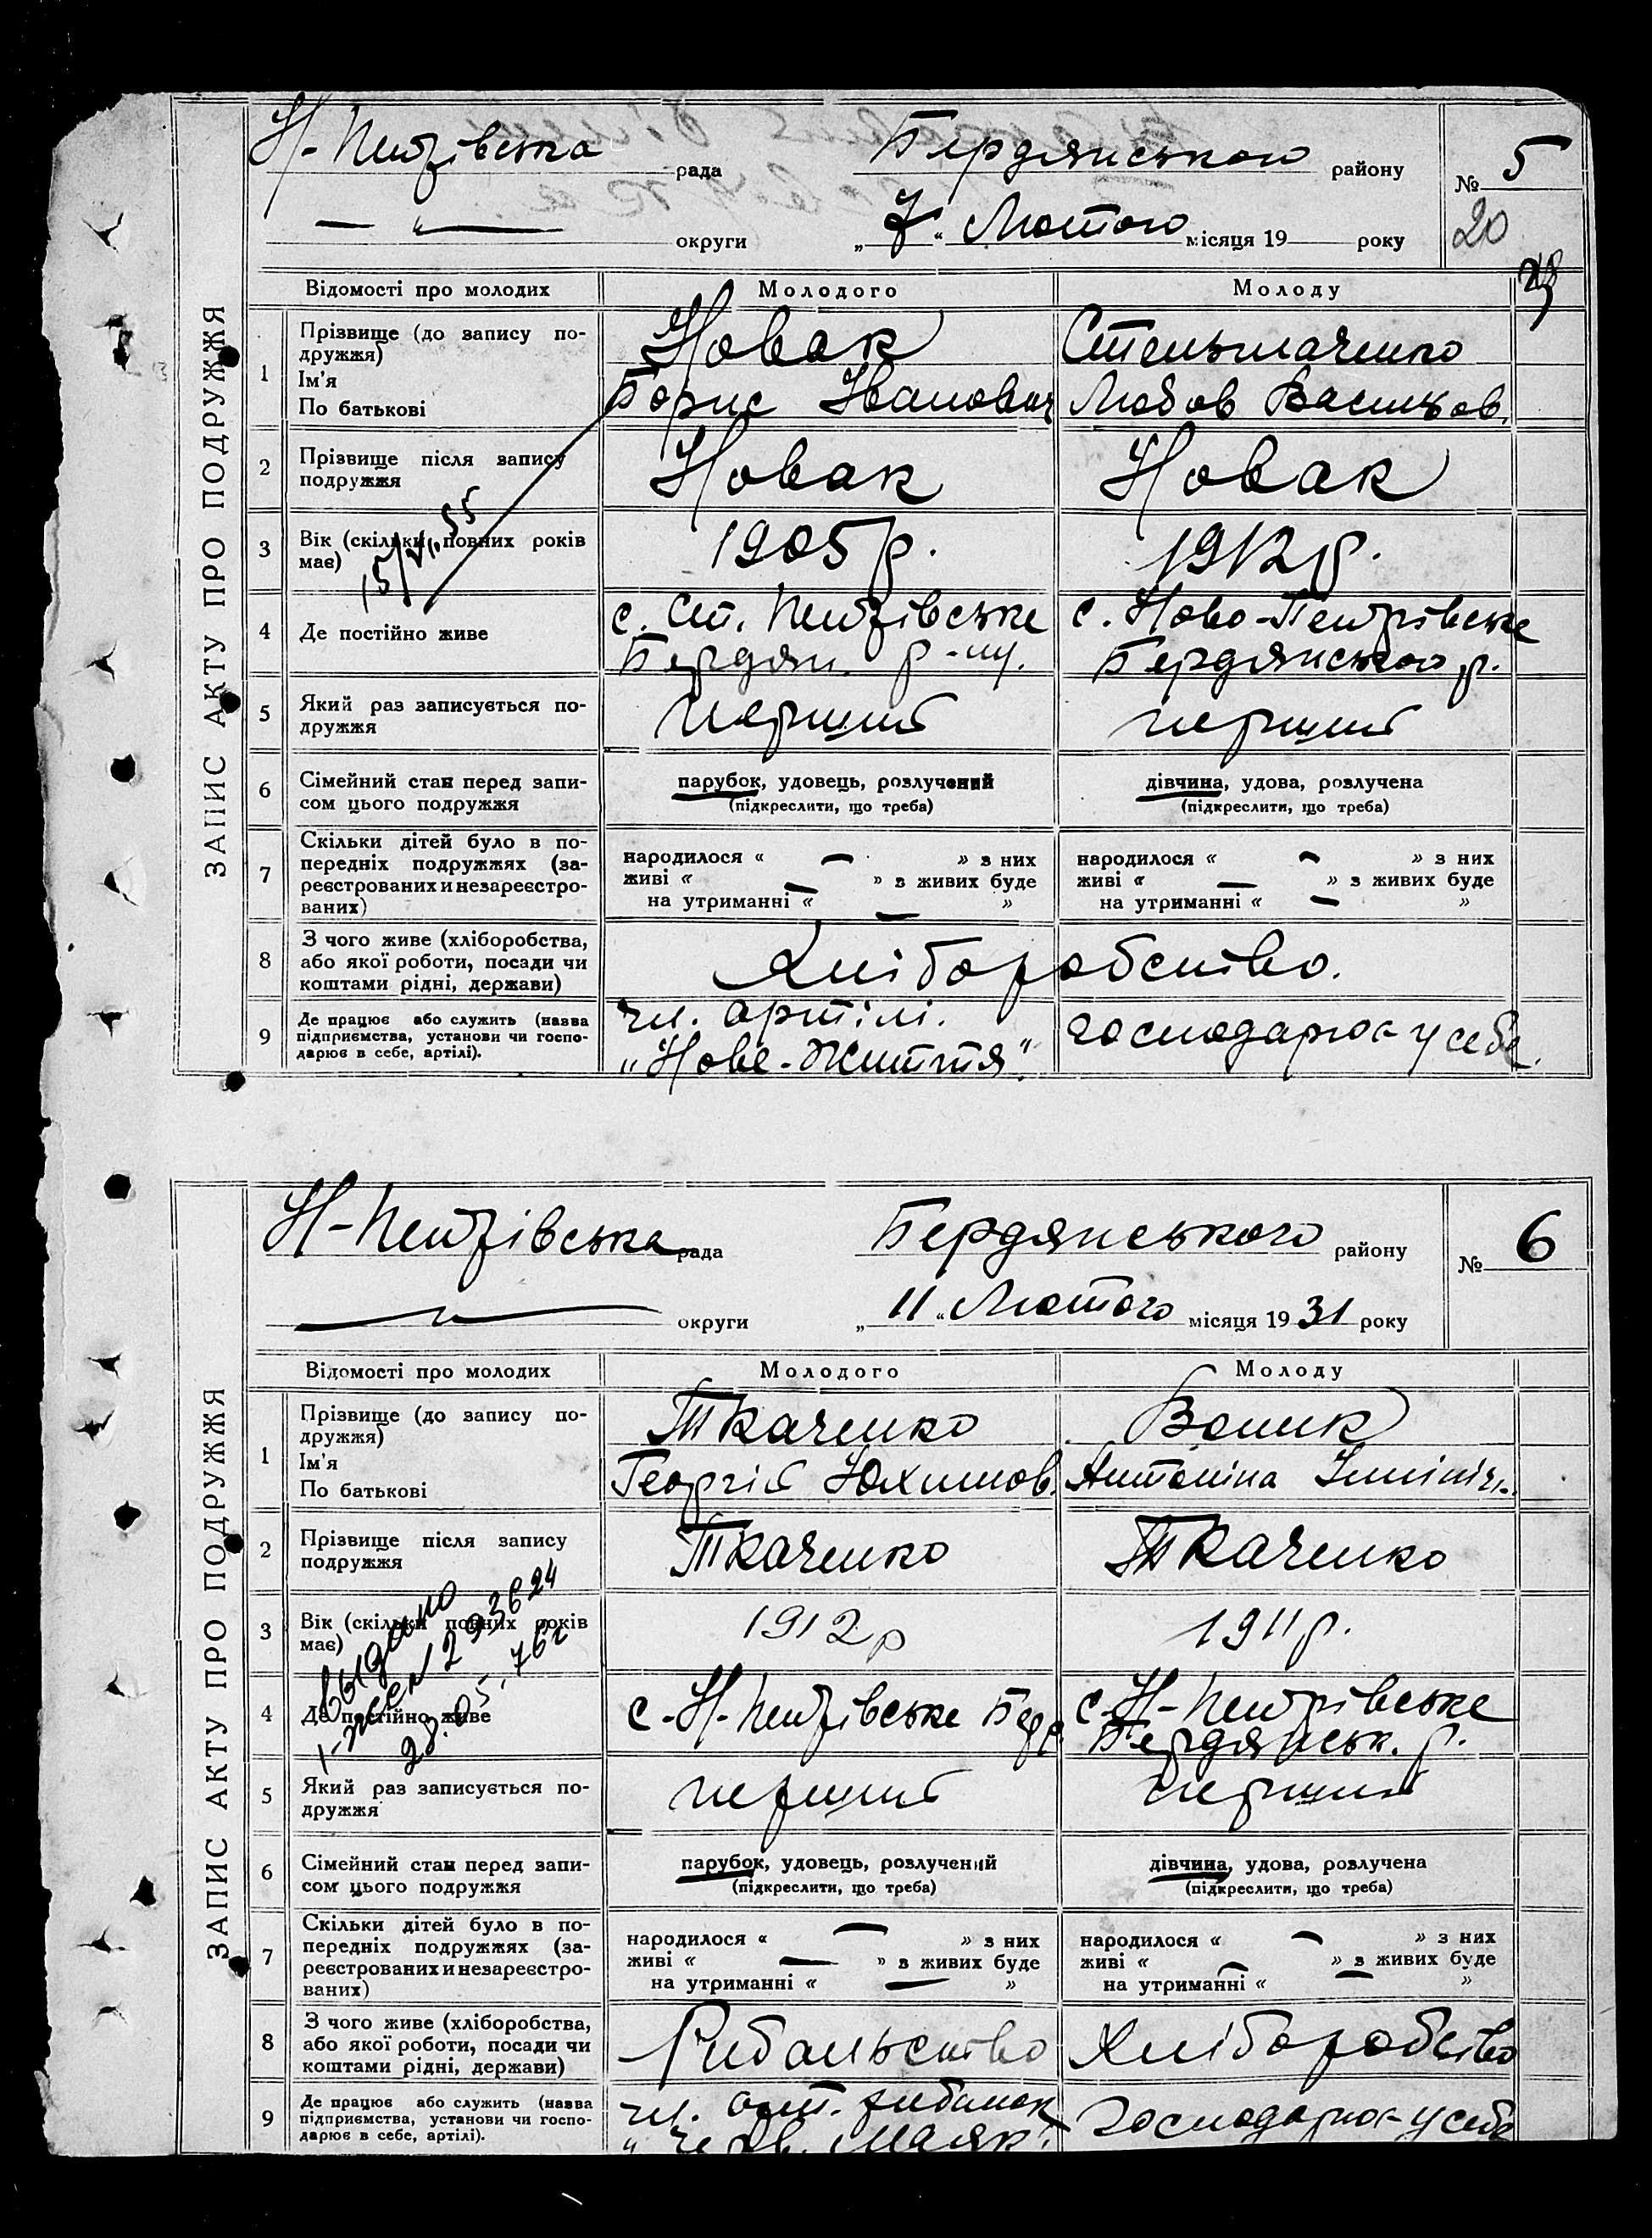 Н-Петрівська рада Бердянського району № 5
округи „7" Лютого місяця 19 року 20
ЗАПИС АКТУ ПРО ПОДРУЖЖЯ
Відомості про молодих Молодого Молоду
1 Прізвище (до запису по- Новак
дружжя)
Ім'я Борис Іванович Любов Васильов.
По батькові
2 Прізвище після запису Новак Новак
подружжя
3 Вік (скільки повних років 1905 р. 1912 р.
має)
4 Де постійно живе с. Ст. Петрівське с. Ново-Петрівське
Бердян. р-ну. Бердянського р.
5 Який раз записується по- перший перший
дружжя
6 Сімейний стан перед запи- парубок, удовець, розлучений дівчина, удова, розлучена
сом цього подружжя (підкреслити, що треба) (підкреслити, що треба)
7 Скільки дітей було в по- народилося « — » з них народилося « — » з них
передніх подружжях (за- живі « — » з живих буде живі « — » з живих буде
реєстрованих и незареєстро- на утриманні « — » на утриманні « — »
ваних)
8 З чого живе (хліборобства, Хліборобство.
або якої роботи, посади чи
коштами рідні, держави)
9 Де працює або служить (назва чл. артілі. господарює у себе.
підприємства, установи чи госпо- „Нове-Життя".
дарює в себе, артілі).
Н-Петрівська рада Бердянського району № 6
округи „11" Лютого місяця 1931 року
ЗАПИС АКТУ ПРО ПОДРУЖЖЯ
Відомості про молодих Молодого Молоду
1 Прізвище (до запису по- Ткаченко
дружжя)
Ім'я Георгій Юхимов. Антоніна
По батькові
2 Прізвище після запису Ткаченко Ткаченко
подружжя
3 Вік (скільки повних років 1912 р 1911 р.
має)
выдано
293624
28.05.76г
4 Де постійно живе с-Н-Петрівське Бер р. с-Н-Петрівське
Бердянськ. р.
5 Який раз записується по- перший перший
дружжя
6 Сімейний стан перед запи- парубок, удовець, розлучений дівчина, удова, розлучена
сом цього подружжя (підкреслити, що треба) (підкреслити, що треба)
7 Скільки дітей було в по- народилося « — » з них народилося « — » з них
передніх подружжях (за- живі « — » з живих буде живі « — » з живих буде
реєстрованих и незареєстро- на утриманні « — » на утриманні « — »
ваних)
8 З чого живе (хліборобства, Рибальство Хліборобство
або якої роботи, посади чи
коштами рідні, держави)
9 Де працює або служить (назва чл. арт. рибалок господарює у себе
підприємства, установи чи госпо- „Черв. Маяк".
дарює в себе, артілі).